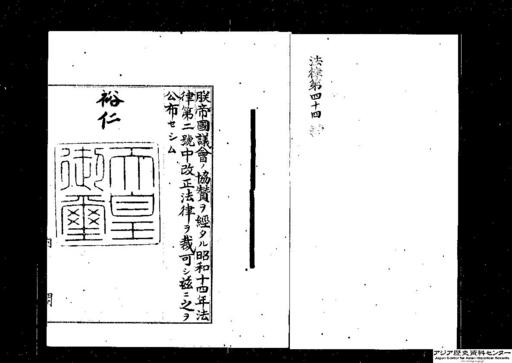 法律第四十四
朕帝國議會ノ協賛ヲ經タル昭和十四年法
律第二號中改正法律ヲ裁可シ茲ニ之ヲ
公布セシム
裕仁
天皇
御璽
内
閣
アジア歴史資料センター
Japan Center for Asian Historical Records